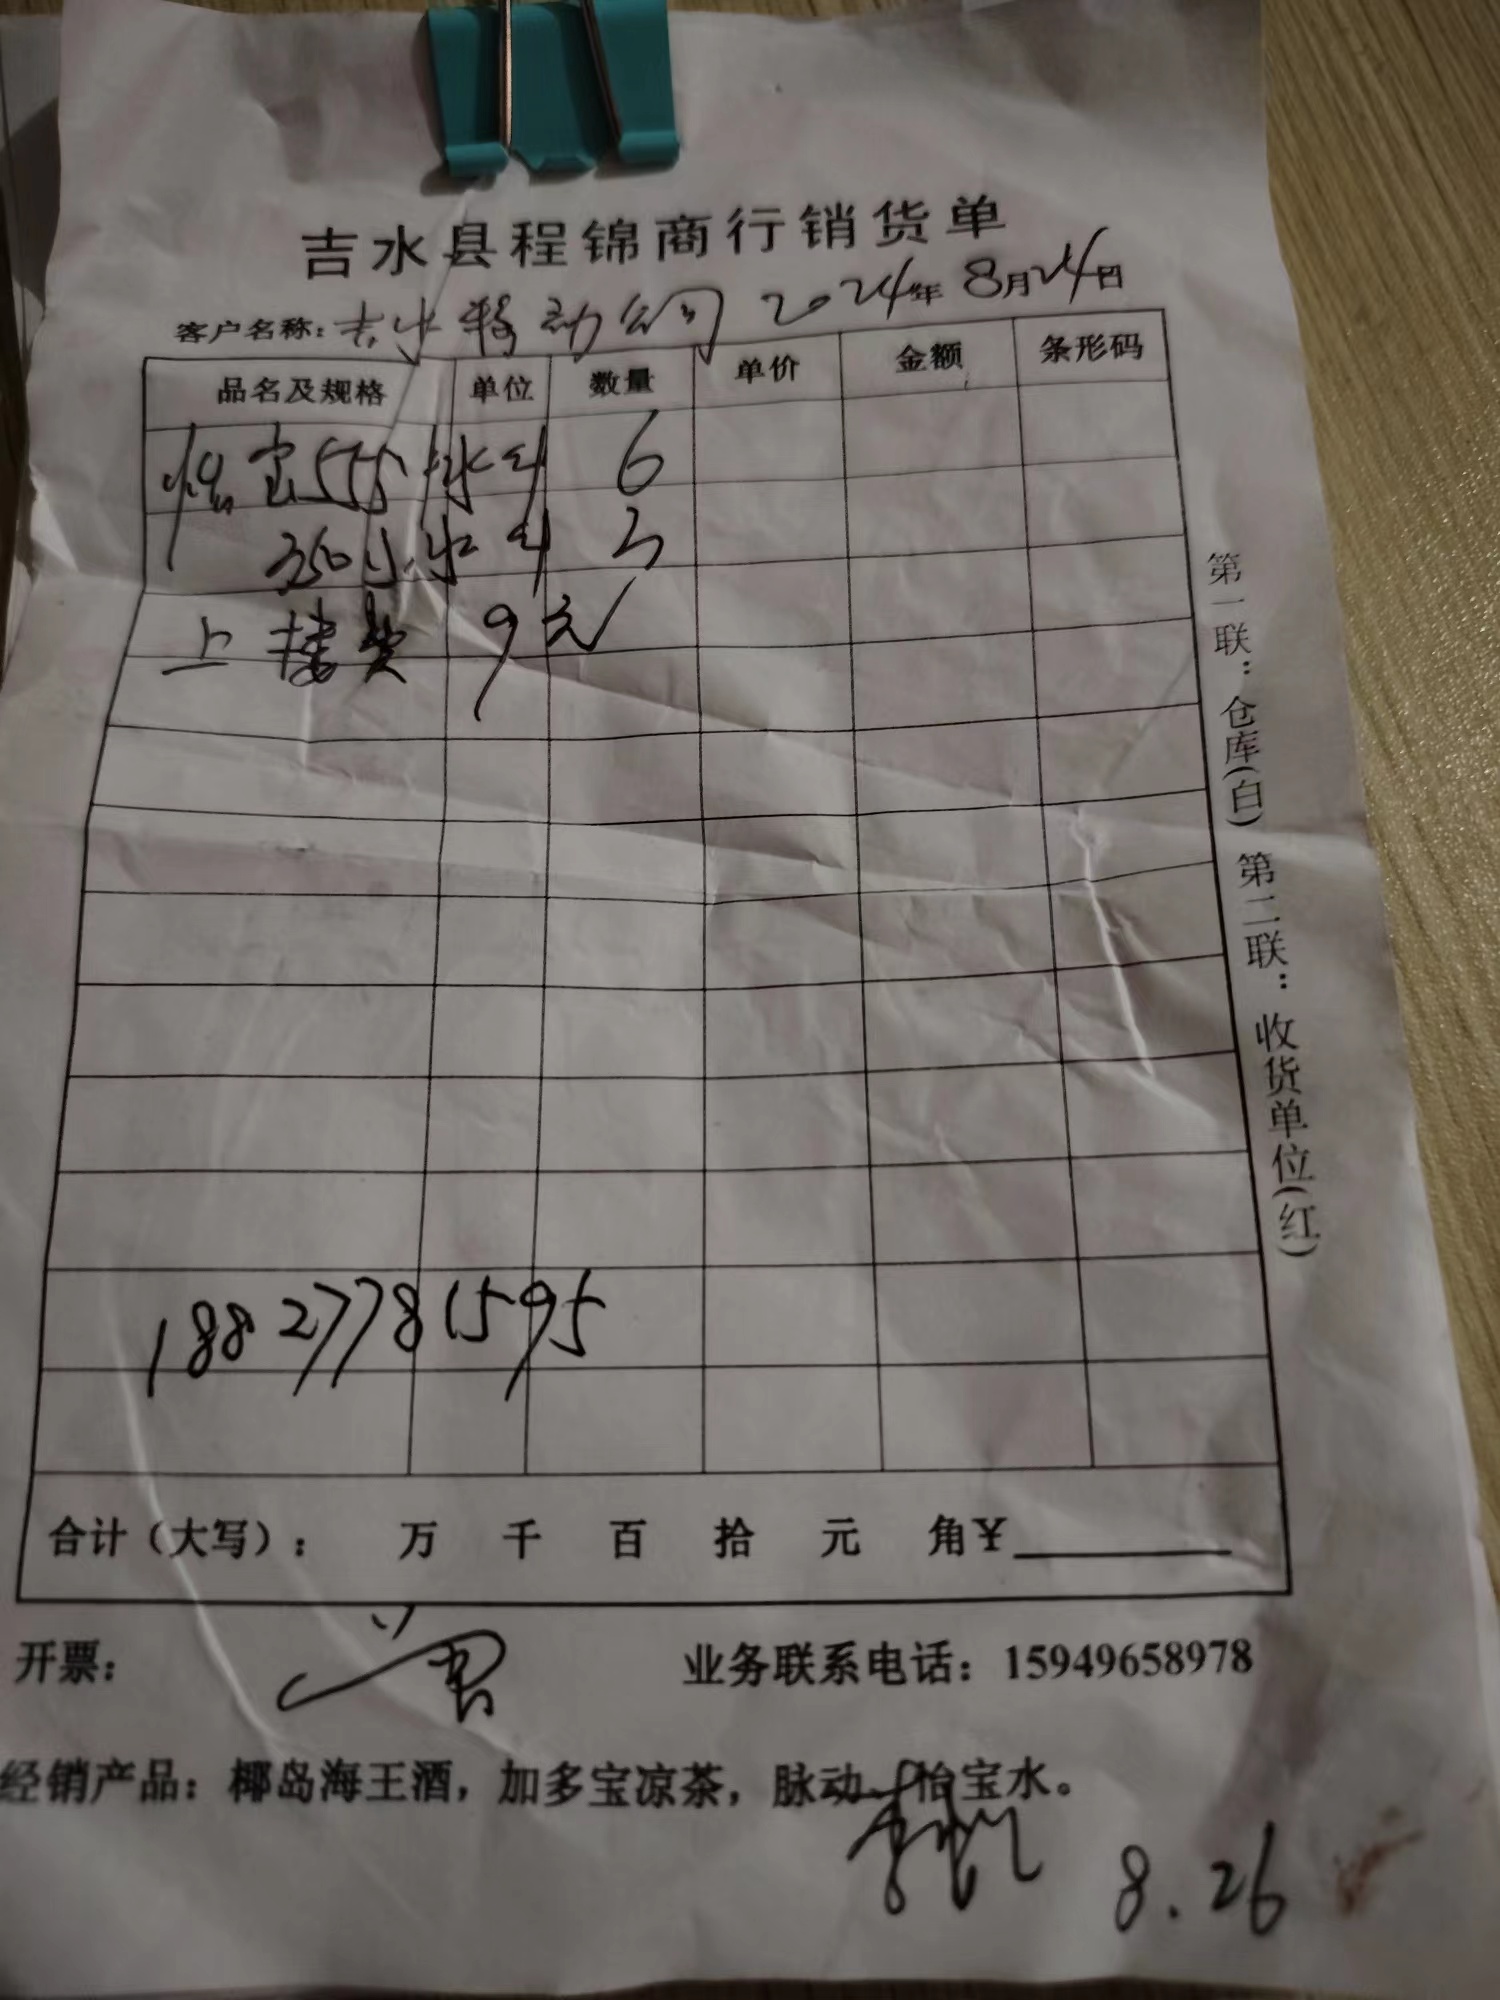 吉水县程锦商行销货单
客户名称: 吉水移动公司 2024年 8月24日
品名及规格 单位 数量 单价 金额 条形码
怡宝555水 件 6
350小水 件 3
上楼费 9元
18827781595
合计（大写）: 万 千 百 拾 元 角¥
开票: 业务联系电话: 15949658978
经销产品: 椰岛海王酒, 加多宝凉茶, 脉动 怡宝水。
8.26
第一联: 仓库(白) 第二联: 收货单位(红)